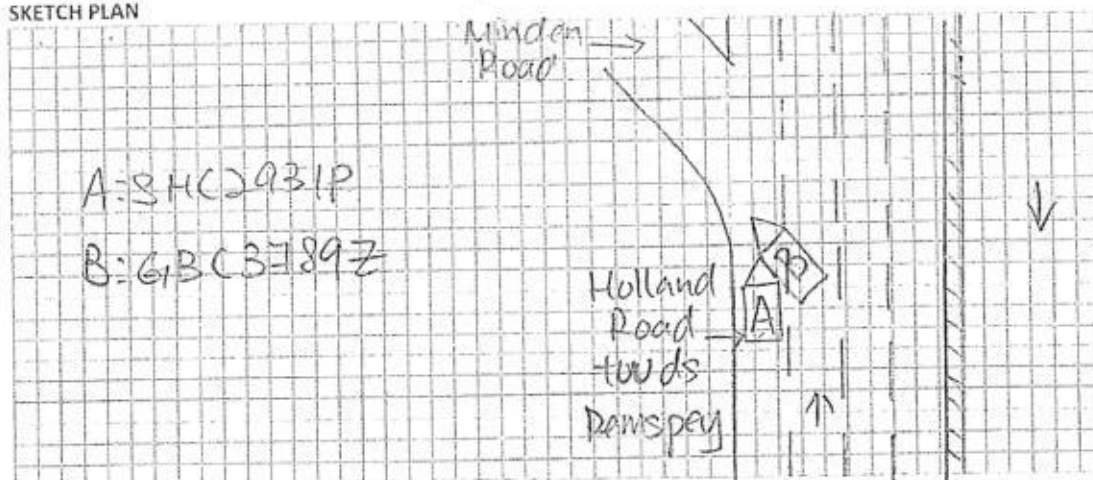 SKETCH PLAN
Minden
Road
A: SHC2931P
B: GBC3789Z
B
A
Holland
Road
twds
Dempsey